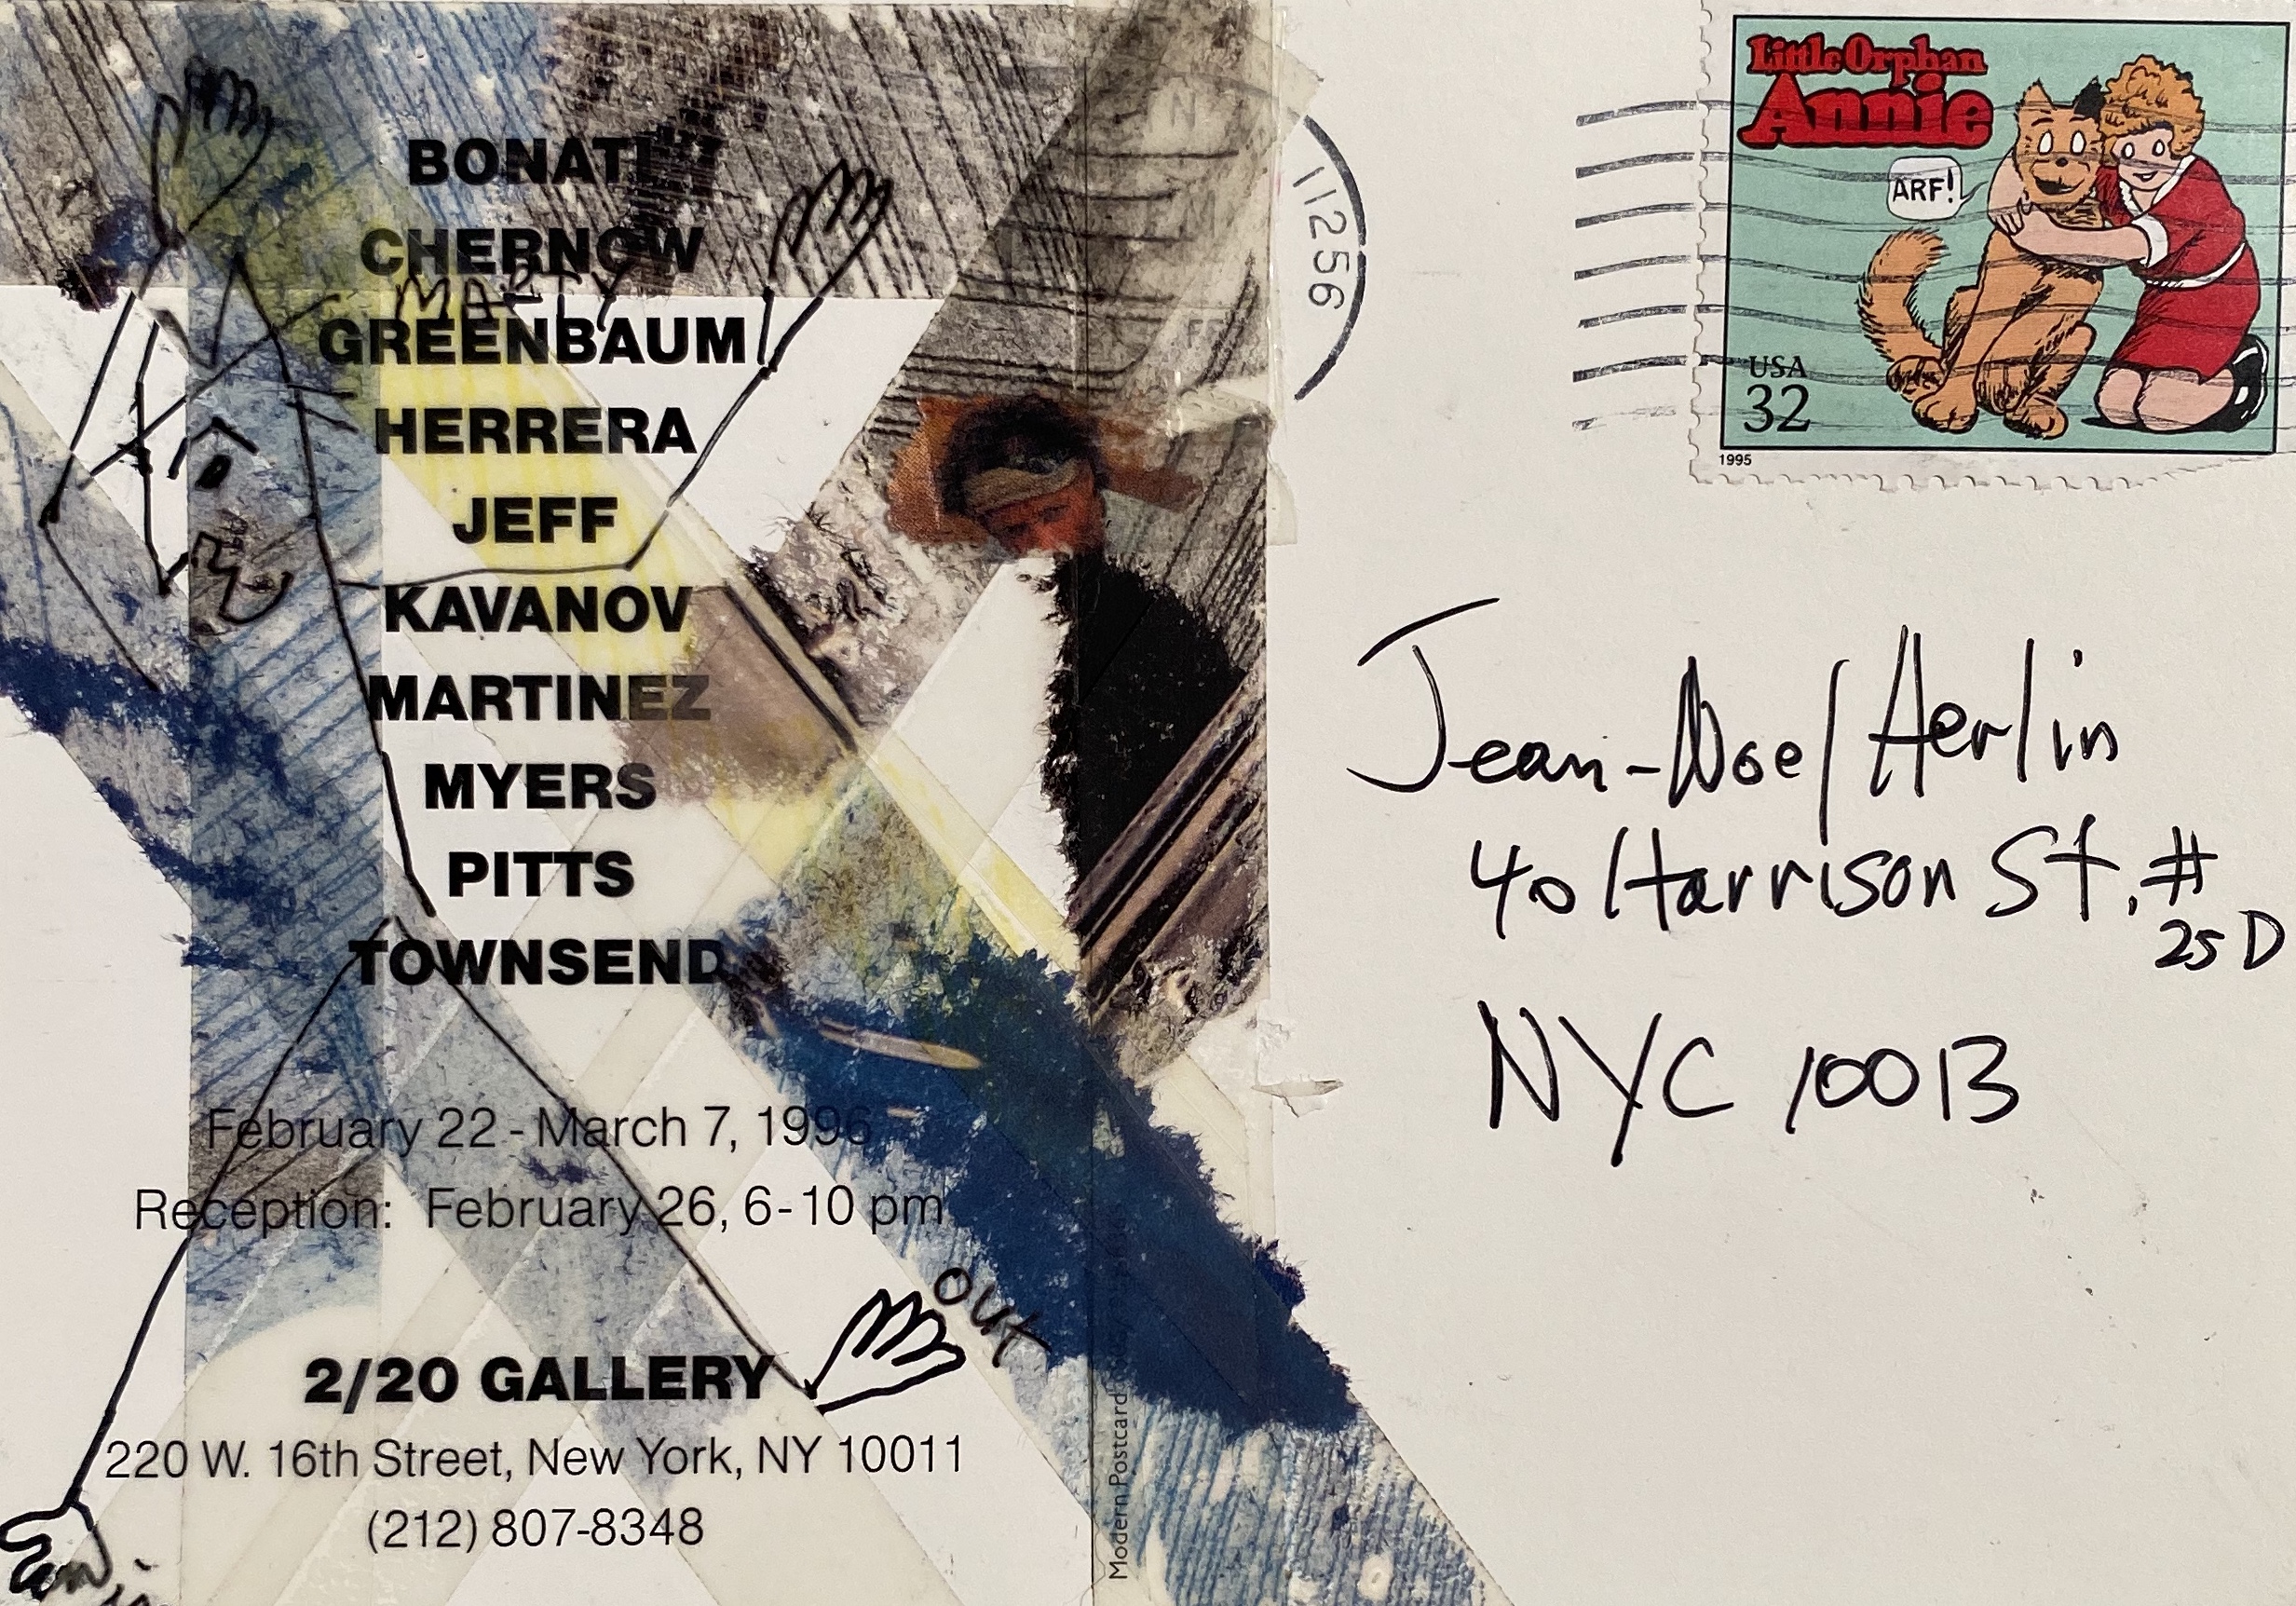 BONATI
CHERNOW
MARTY
GREENBAUM
HERRERA
JEFF
KAVANOV
MARTINEZ
MYERS
PITTS
TOWNSEND
February 22 - March 7, 1996
Reception: February 26, 6-10 pm
out
2/20 GALLERY
220 W. 16th Street, New York, NY 10011
(212) 807-8348
Modern Postcard
11256
Little Orphan
Annie
ARF!
USA
32
1995
Jean-Noel Herlin
40 Harrison St. #
25D
NYC 10013